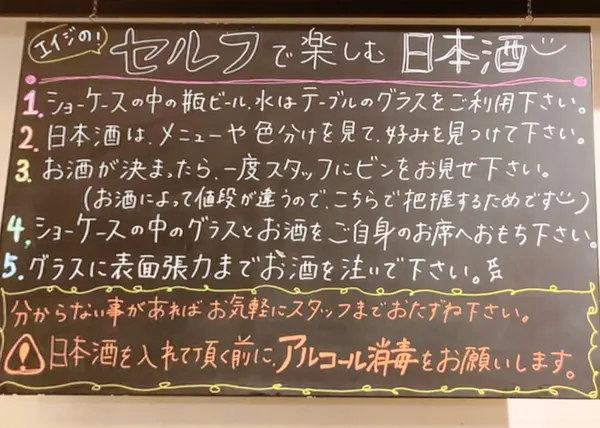 エイジの！
セルフで楽しむ 日本酒
1. ショーケースの中の瓶ビール、水はテーブルのグラスをご利用下さい。
2. 日本酒は、メニューや色分けを見て、好みを見つけて下さい。
3. お酒が決まったら、一度スタッフにビンをお見せ下さい。
(お酒によって値段が違うので、こちらで把握するためです)
4, ショーケースの中のグラスとお酒をご自身のお席へおもち下さい。
5. グラスに表面張力までお酒を注いで下さい。
分からない事があればお気軽にスタッフまでおたずね下さい。
日本酒を入れて頂く前に、アルコール消毒をお願いします。